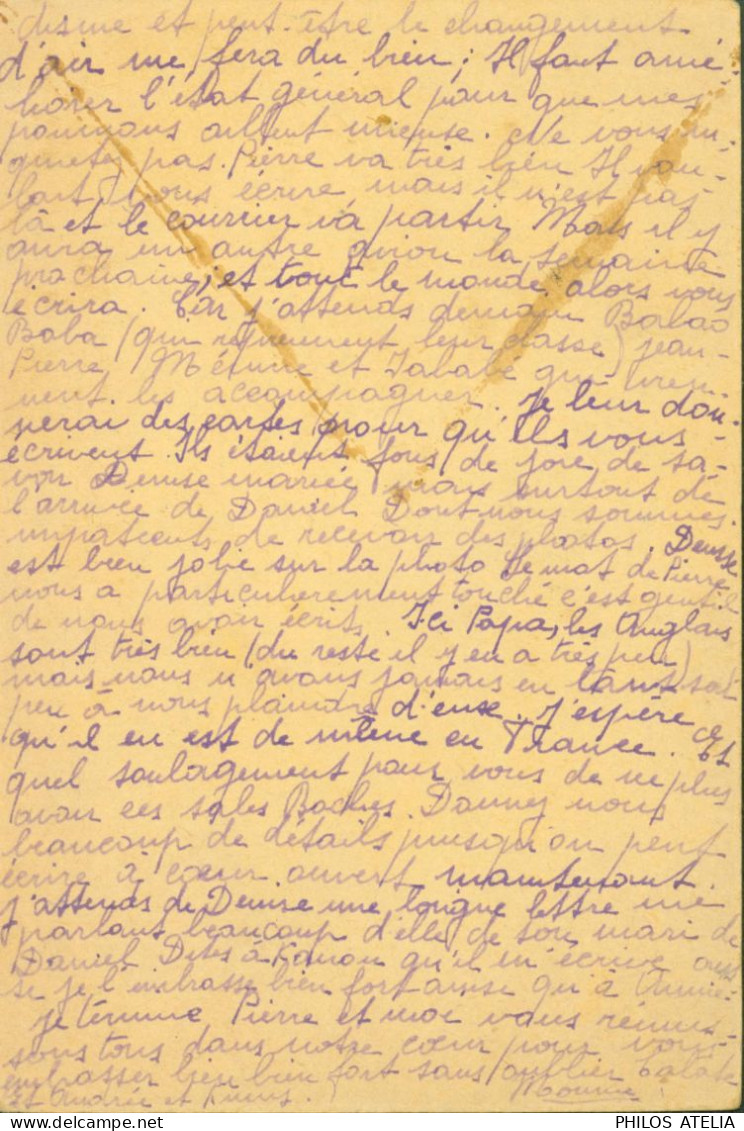 disme et peut-être le changement
d'air me fera du bien; Il faut amé-
liorer l'état général pour que mes
poumons aillent mieux. Ne vous in-
quiétez pas. Pierre va très bien Il vou-
lait vous écrire mais il n'est pas
là et le courrier va partir Mais il y
aura un autre avion la semaine
prochaine; et tout le monde alors vous
écrira. Car j'attends demain Babao
Baba (qui leur classe) Jean-
Pierre, et qui vien-
nent les accompagner. Je leur don-
nerai des cartes pour qu'ils vous
écrivent. Ils étaient fous de joie de sa-
voir Denise mariée mais surtout de
l'arrivée de Daniel Dont nous sommes
impatients de recevoir des photos. Denise
est bien jolie sur la photo Le mot de Pierre
nous a particulièrement touché c'est gentil
de nous avoir écrit. Ici Papa, les Anglais
sont très bien (du reste il y en a très peu)
mais nous n'avons jamais eu tant soit
peu à nous plaindre d'eux. J'espère
qu'il en est de même en France. Et
quel soulagement pour vous de ne plus
avoir ces sales Boches. Donnez nous
beaucoup de détails puisqu'on peut
écrire à cœur ouvert maintenant.
J'attends de Denise une longue lettre me
parlant beaucoup d'elle, de son mari de
Daniel Dites à qu'il m'écrive aus-
si je l'embrasse bien fort ainsi qu'à Annie.
Je termine Pierre et moi vous réunis-
sons tous dans notre cœur pour vous
embrasser bien bien fort sans oublier
et Andrée et
PHILOS ATELIA